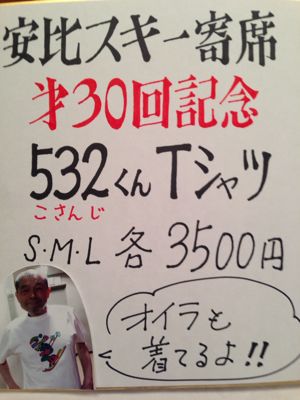 安比スキー寄席
才30回記念
532くん Tシャツ
こさんじ
S・M・L 各 3500円
オイラも
着てるよ!!